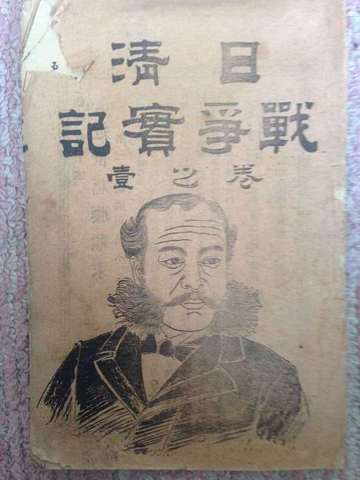 日清
戰爭實記
卷之壹
る